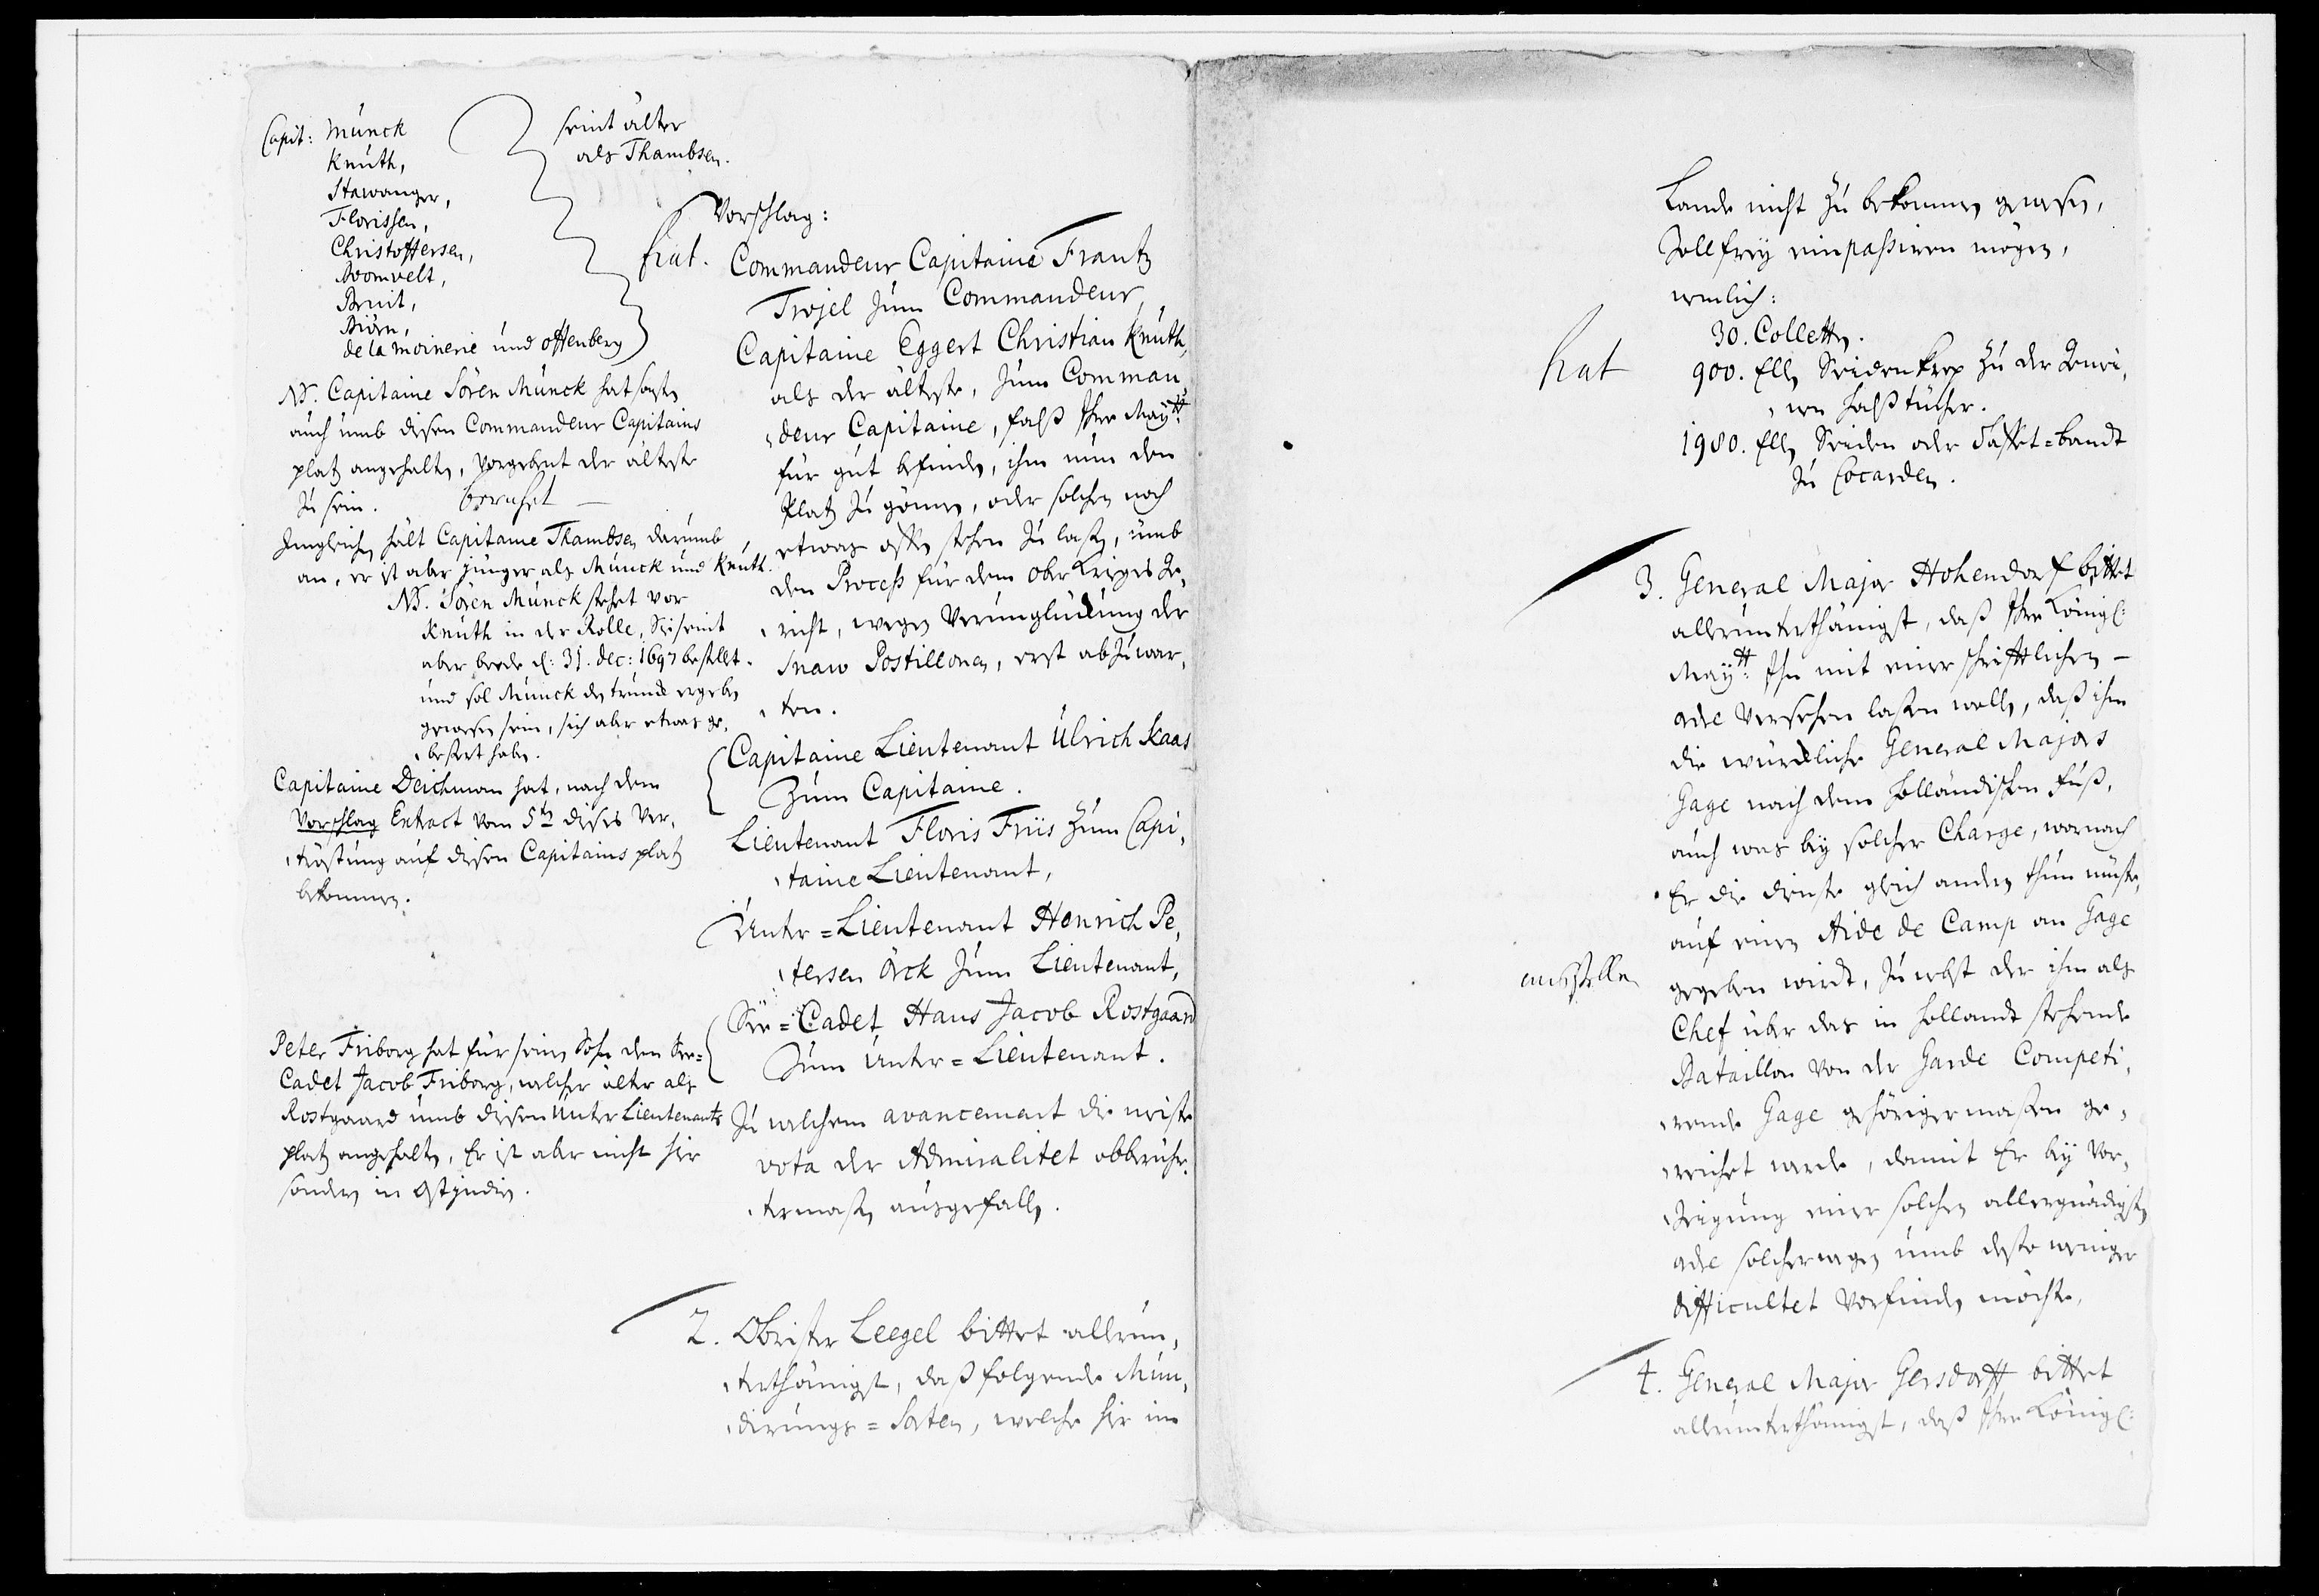 Capit: Münck
Knuth,
Stawanger,
Florissen,
Christoffersen,
Roomvelt,
Bruit,
Biörn,
de la Moinerie und Offenberg
seint älter
als Thambsen.
NB. Capitaine Sören Münck hat sonst
auch umb diesen Commandeur Capitains
platz angehalten, vorgebent der älteste
zu sein. beruhet
Imgleichen hält Capitaine Thambsen darumb
an, er ist aber jünger als Münck und Knuth.
NB. Sören Münck stehet vor
Knuth in der Rolle, Sie seint
aber beede d: 31. dec: 1697 bestellt.
und sol Münck den trunck ergeben
gewesen sein, sich aber etwas ge-
bessert haben.
Capitaine Deichman hat, nach dem
Vorschlag Extract vom 5ten dieses Ver-
tröstung auf diesen Capitains platz
bekommen.
Peter Friborg hat für seinen Sohn den See-
Cadet Jacob Friborg, welcher älter als
Rostgaard umb diesen Unter Lieutenants
platz angehalten, Er ist aber nicht hier
sondern in Ostjndien.
Vorschlag:
fiat. Commandeur Capitaine Frantz
Trojel zum Commandeur,
Capitaine Eggert Christian Knuth,
als der älteste, zum Comman-
deur Capitaine, falß Ihre Maytt:
für gut befinden, ihm nun den
Platz zu gönnen, oder solchen noch
etwas offen stehen zu laßen, umb
den Process für dem Ober Krieges Ge-
richt, wegen Verunglückung der
Snaw Postillonen, erst abzuwar-
ten.
Capitaine Lieutenant Ulrich Kaas
Zum Capitaine.
Lieutenant Floris Friis Zum Capi-
taine Lieutenant,
Unter=Lieutenant Henrich Pe-
tersen Örck zum Lieutenant,
See=Cadet Hans Jacob Rostgaard
Zum Unter=Lieutenant.
Zu welchem avancement die meiste
vota der Admiralitet obberühr-
termaßen ausgefallen.
2. Obrister Leegel bittet allerun-
terthänigst, daß folgende Mun-
dirungs=Sorten, welche hier im
Lande nicht zu bekommen gewesen,
Zollfrey einpassiren mögen,
nemlich:
30. Colletten.
hat 900. Ellen Seidenkrep zu der Reuter
halßtücher.
1980. Ellen Seiden oder Taffet=bandt
zu Cocarden.
3. General Major Hohendorf bittet
allerunterthänigst, daß Ihre Königl:
Maytt: Ihn mit einer schrifftlichen
ordre versehen laßen wollen, daß ihm
die würckliche General Majors
Gage nach dem holländischen fuß,
auch was bey solcher Charge, wornach
Er die dienste gleich andern thun müste,
auf einen Aide de Camp an Gage
ausstellen gegeben wirdt, zu nebst der ihm als
Chef über das in Hollandt stehende
Bataillon von der Garde Competi-
rende Gage gehörigermaßen ge-
reichet werde, damit Er bey Vor-
zeigung einer solchen allergnädigsten
ordre solcherwegen umb desto weniger
difficultet vorfinden möchte.
4. General Major Gersdorff bittet
allerunterthänigst, daß Ihre Königl: